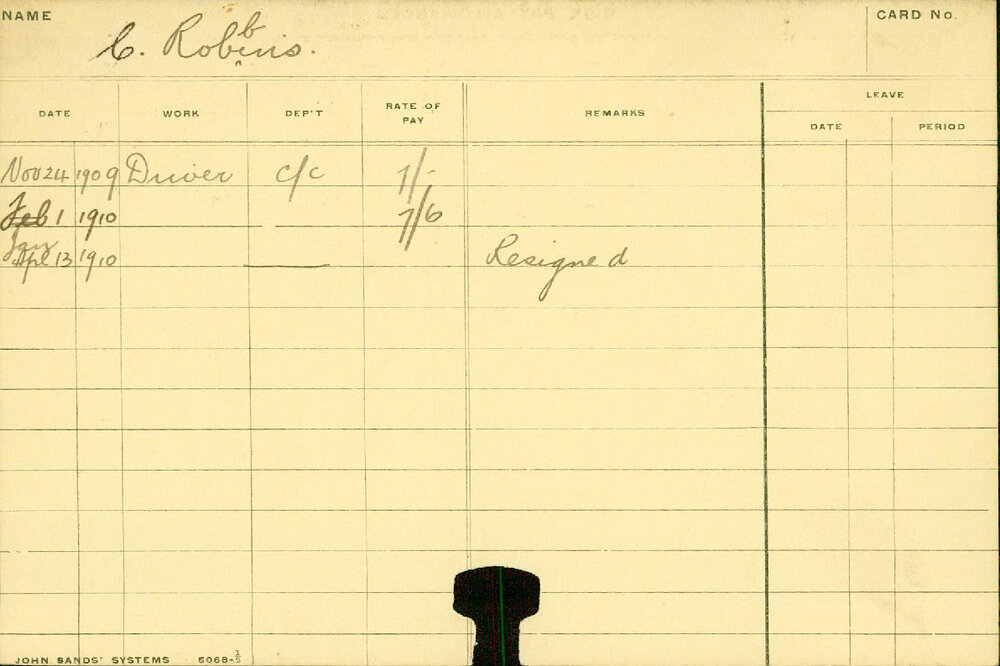 NAME
C. Robbins.
CARD No.
DATE WORK DEP'T RATE OF PAY REMARKS LEAVE
DATE PERIOD
Nov 24 1909 Driver c/c 7/-
Feb 1 1910 7/6
Jan
Apl 13 1910 Resigned
JOHN SANDS' SYSTEMS 5068-